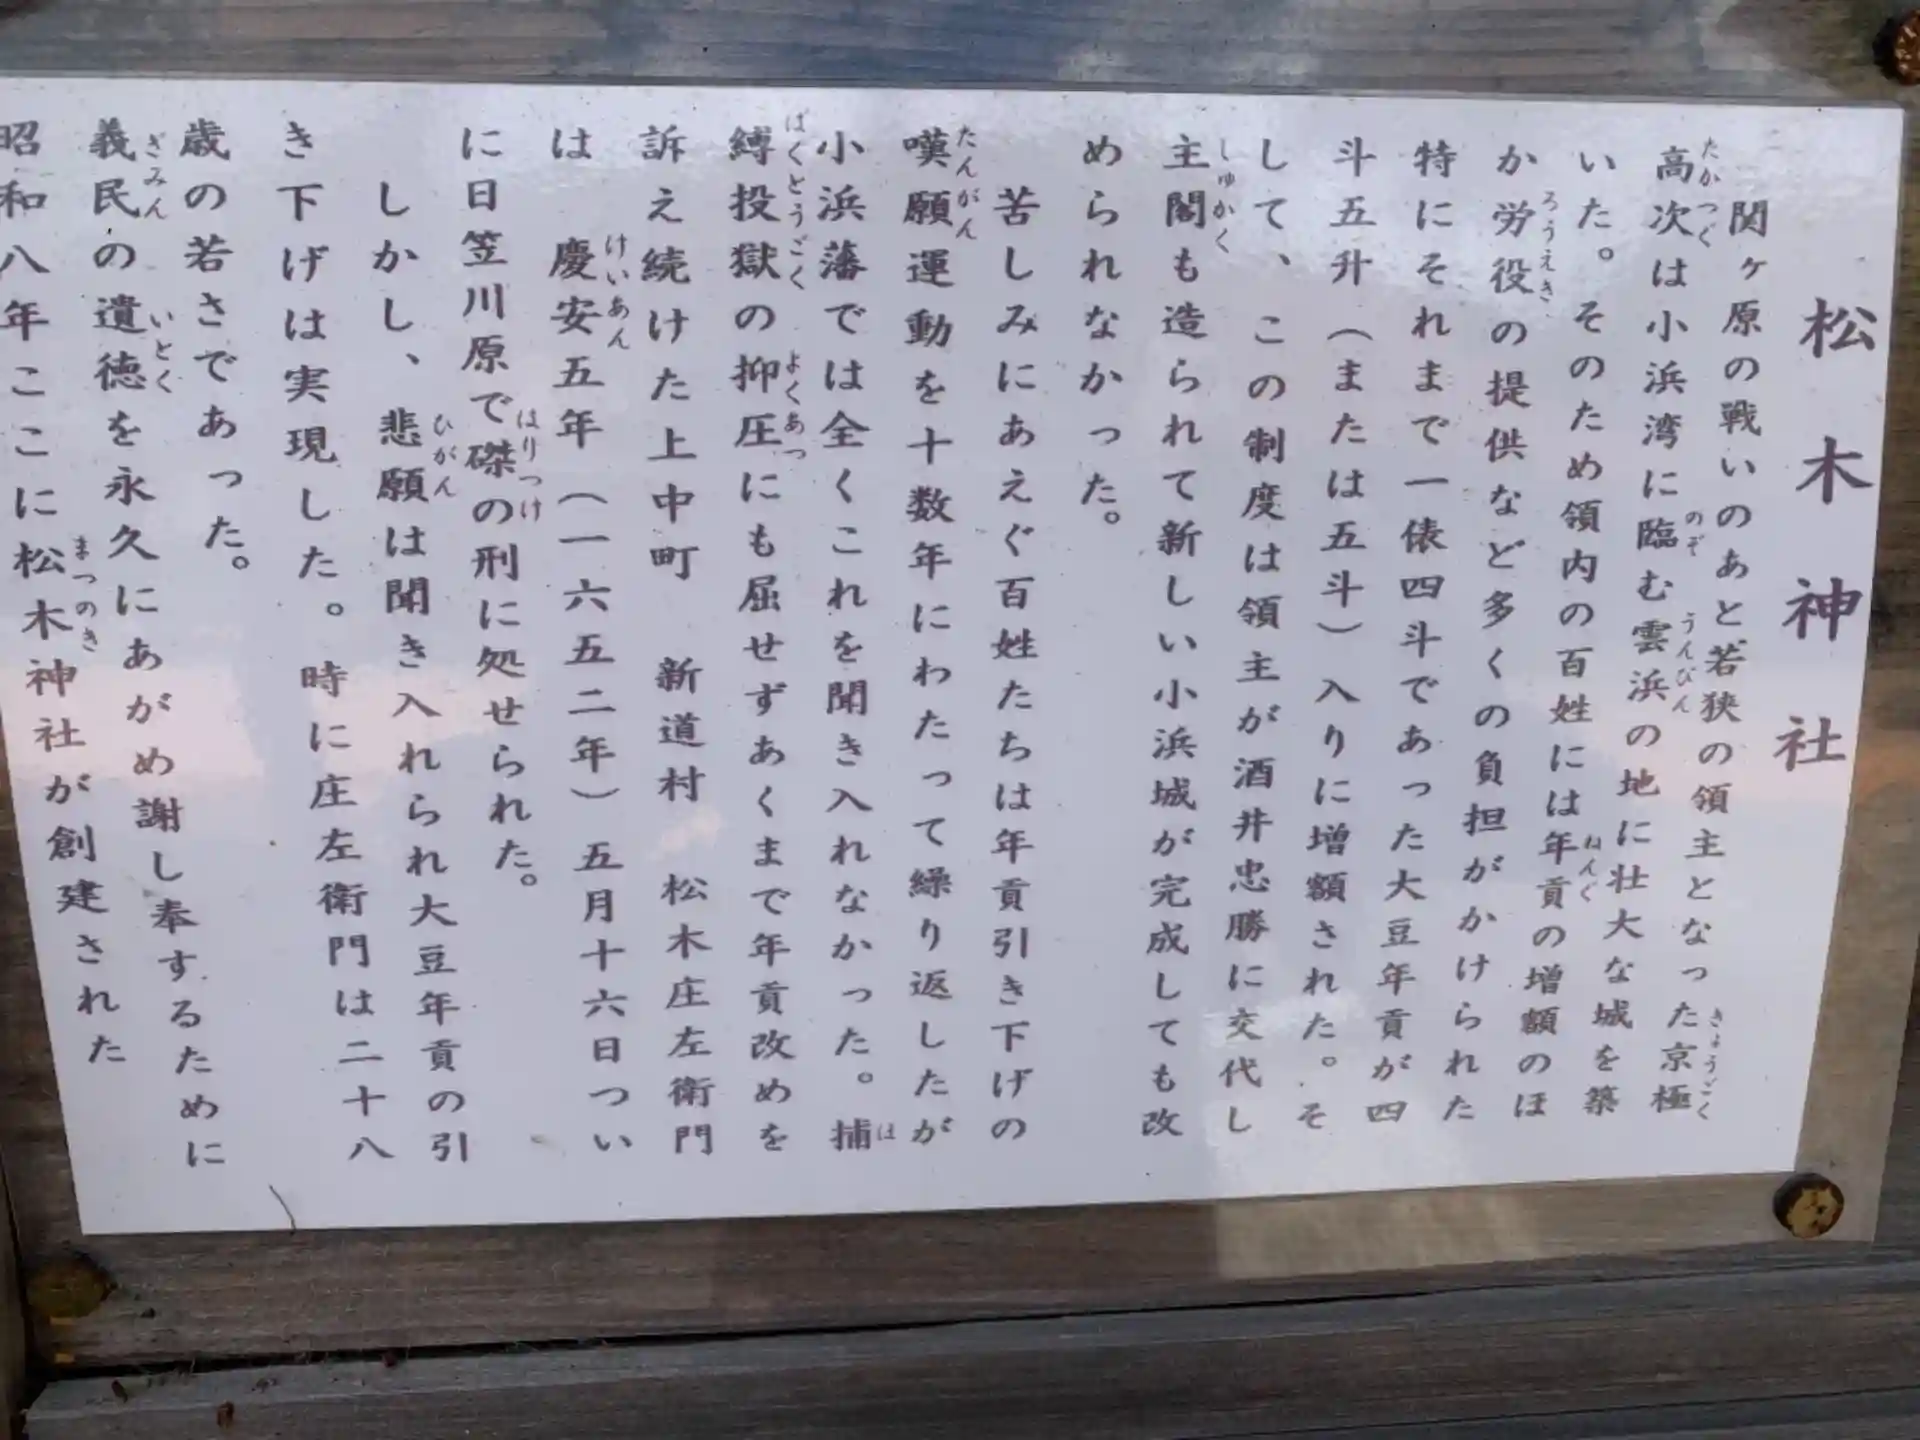 松木神社
関ヶ原の戦いのあと若狭の領主となった京極
高次は小浜湾に臨む雲浜の地に壮大な城を築
いた。そのため領内の百姓には年貢の増額のほ
か労役の提供など多くの負担がかけられた
特にそれまで一俵四斗であった大豆年貢が四
斗五升（または五斗）入りに増額された。そ
して、この制度は領主が酒井忠勝に交代し
主閣も造られて新しい小浜城が完成しても改
められなかった。
苦しみにあえぐ百姓たちは年貢引き下げの
嘆願運動を十数年にわたって繰り返したが
小浜藩では全くこれを聞き入れなかった。捕
縛投獄の抑圧にも屈せずあくまで年貢改めを
訴え続けた上中町　新道村　松木庄左衛門
は　慶安五年（一六五二年）五月十六日つい
に日笠川原で磔の刑に処せられた。
しかし、悲願は聞き入れられ大豆年貢の引
き下げは実現した。時に庄左衛門は二十八
歳の若さであった。
義民の遺徳を永久にあがめ謝し奉するために
昭和八年ここに松木神社が創建された